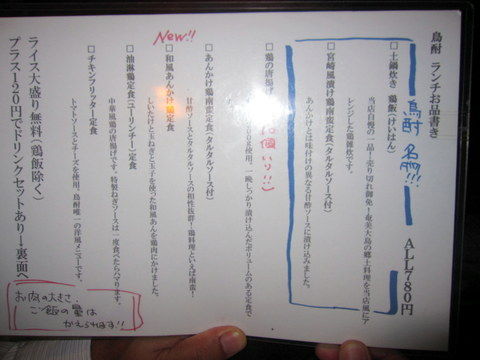 鳥酎 ランチお品書き
ALL780円
鳥酎 名物!!!
□土鍋炊き 鶏飯(けいはん)
当店自慢の一品!売り切れ御免!奄美大島の郷土料理を当店風にア
レンジした鶏雑炊です。
□宮崎風漬け鶏南蛮定食(タルタルソース付)
あんかけとは味付けの異なる甘酢ソースに漬け込みました。
□鶏の唐揚げ
個入り!!)
使用。一晩しっかり漬け込んだボリュームのある定食で
□あんかけ鶏南蛮定食(タルタルソース付)
甘酢ソースとタルタルソースの相性抜群!鶏料理といえば南蛮!
New!!
□和風あんかけ鶏定食
しいたけと玉ねぎと玉子を使った和風あんを鶏肉にかけました。
□油淋鶏定食(ユーリンチー)定食
中華風鶏の唐揚げです。特製ねぎソースは一度食べたらハマります。
□チキンフリッター定食
トマトソースとチーズを使用。鳥酎唯一の洋風メニューです。
ライス大盛り無料(鶏飯除く)
プラス120円でドリンクセットあり→裏面へ
お肉の大きさ、
ご飯の量は
かえられます!!